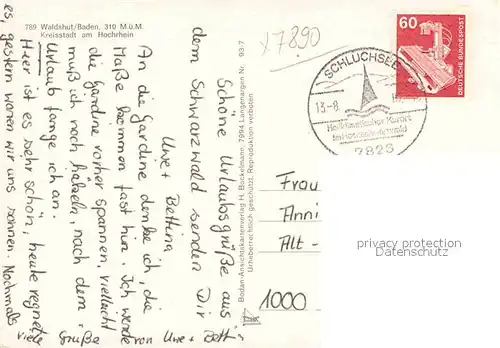 789 Waldshut/Baden, 310 M.ü.M.
Kreisstadt am Hochrhein
x7890
60
DEUTSCHE BUNDESPOST
SCHLUCHSEE
13.-8.
Heilklimatischer Kurort
im Hochschwarzwald
7826
Schöne Urlaubsgrüße aus
dem Schwarzwald senden Dir
Uwe + Bettina
An die Gardine denke ich, die
Maße kommen fast hin. Ich werde
die Gardine vorher spannen, vielleicht
muß ich noch häkeln, nach dem
Urlaub fange ich an.
Hier ist es sehr schön, heute regnete
es gestern waren wir uns sonnen. Nochmals
viele Grüße von Uwe + Bett
Bodan-Ansichtskartenverlag H. Backelmann, 7994 Langenargen Nr. 93/7
Urheberrechtlich geschützt. Reproduktion verboten
Frau
Anni
Alt -
1000
privacy protection
Datenschutz